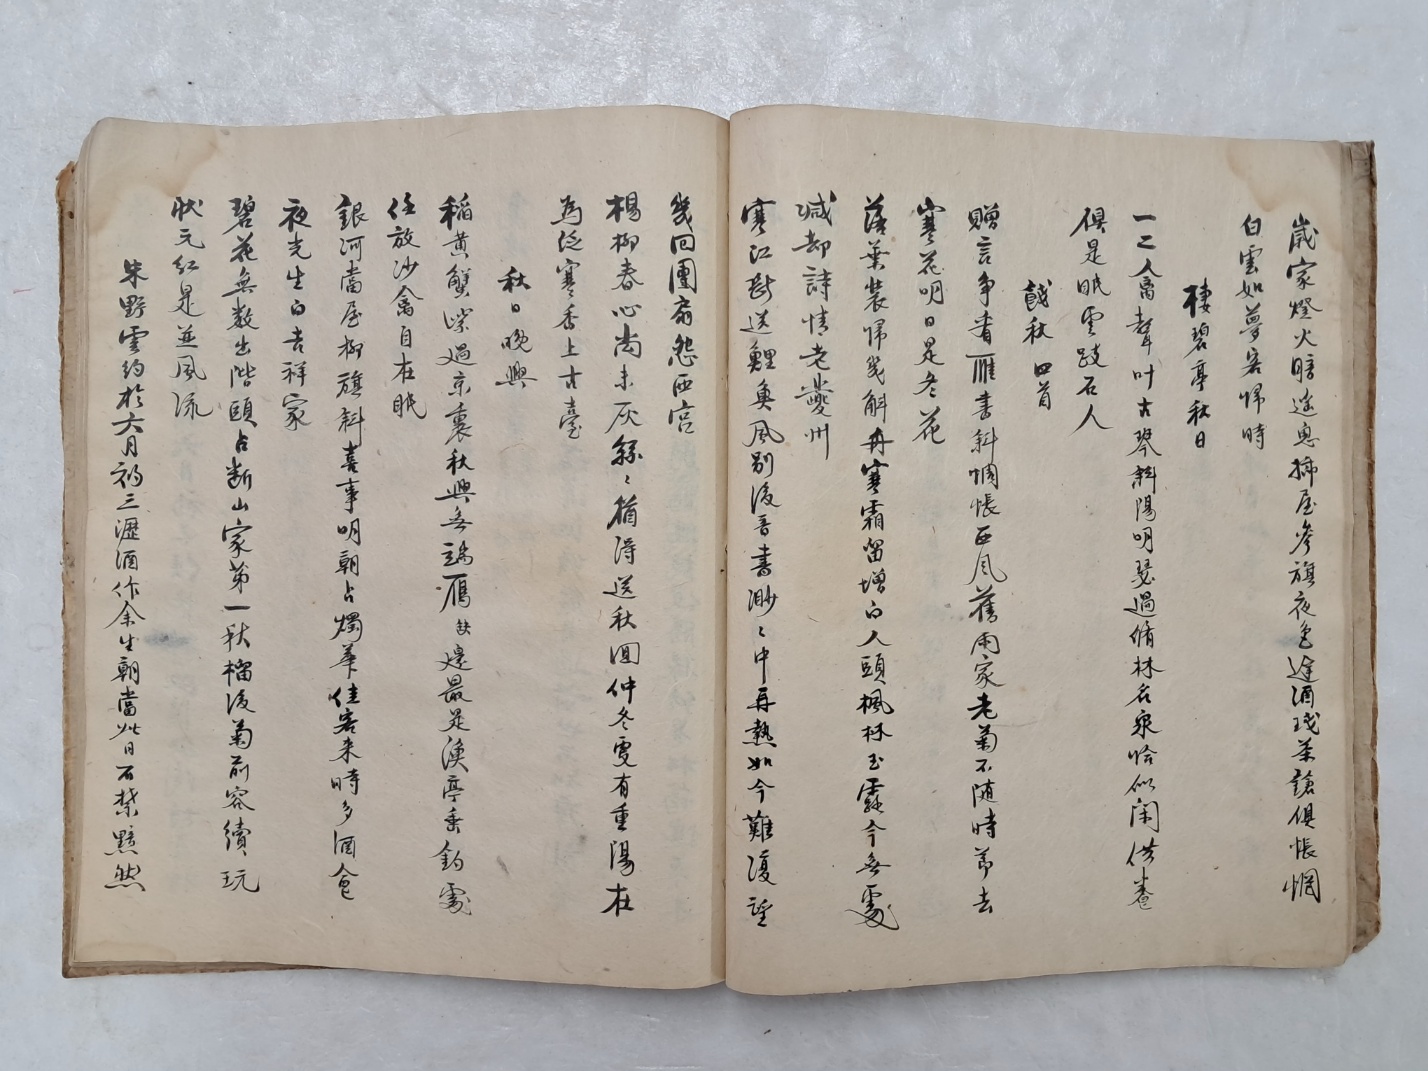 歲家燈火賠遙思掃屋參旗夜色遲酒琖茶鎗俱悵惘
白雲如夢客帰時
棲碧亭秋日
一二人禽聲叶古琴斜陽明瑟過脩林名泉恰似閑供養
俱是眠雲跂石人
餞秋 四首
贈言爭看雁書斜惆悵西風舊雨家老菊不随時節去
寒花明日是冬花
落葉裝帰幾斛舟寒霜留增白人頭楓林玉露今無處
減却詩情老夔州
寒江断送鯉魚風別後音書渺〻中再熱如今難復望
幾回團扇怨西宮
楊柳春心尚未灰絲〻猶得送秋迴仲冬更有重陽在
為泛寒香上古臺
秋日晚興
稻黄蟹紫過京裏秋興無端雁字邊最是漁亭垂釣處
任放沙禽自在眠
銀河當屋柳旗斜喜事明朝占燭華佳客来時多酒食
夜光生白吉祥家
碧花無数出階頤占断山家第一秋榴後菊前容續玩
狀元紅是並風流
朱野雲約於六月初三瀝酒作余生朝當此日不禁黯然